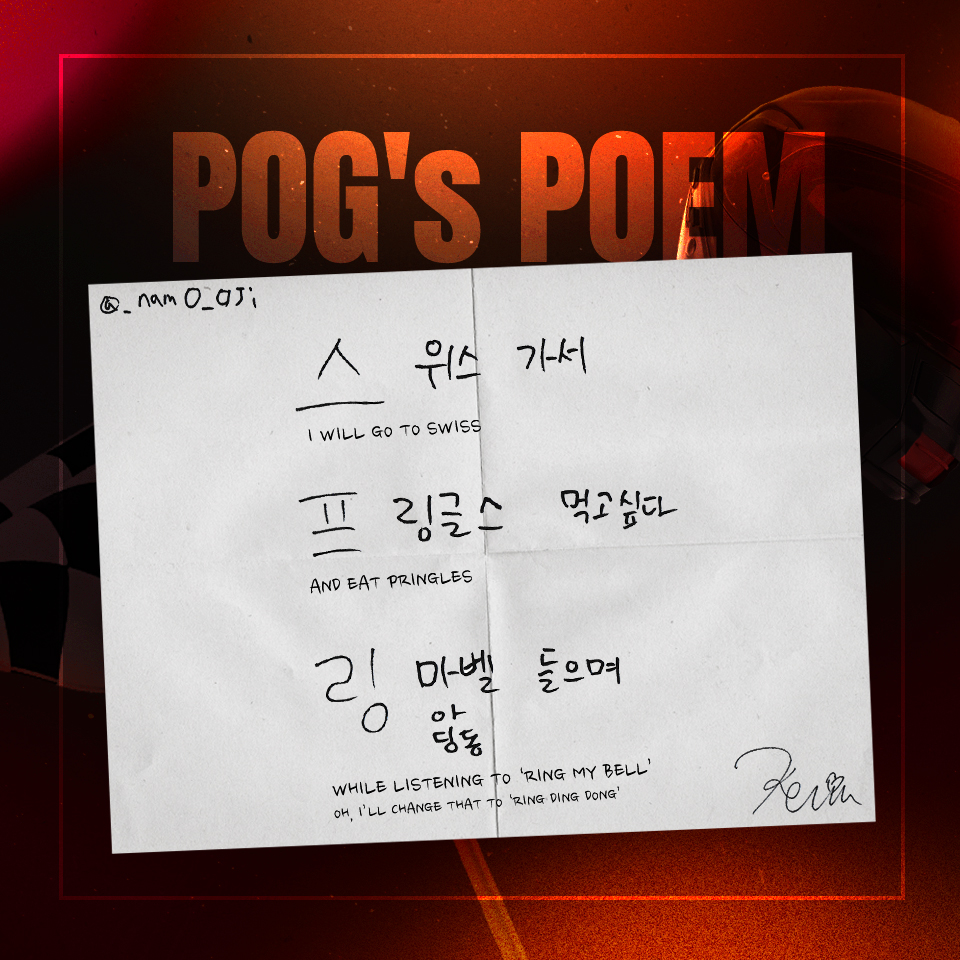 POG's POEM
@_nam0_aJi
스 위스 가서
I WILL GO TO SWISS
프 링글스 먹고싶다
AND EAT PRINGLES
링 마벨 들으며
아
딩동
WHILE LISTENING TO 'RING MY BELL'
OH, I'LL CHANGE THAT TO 'RING DING DONG'
Kevin